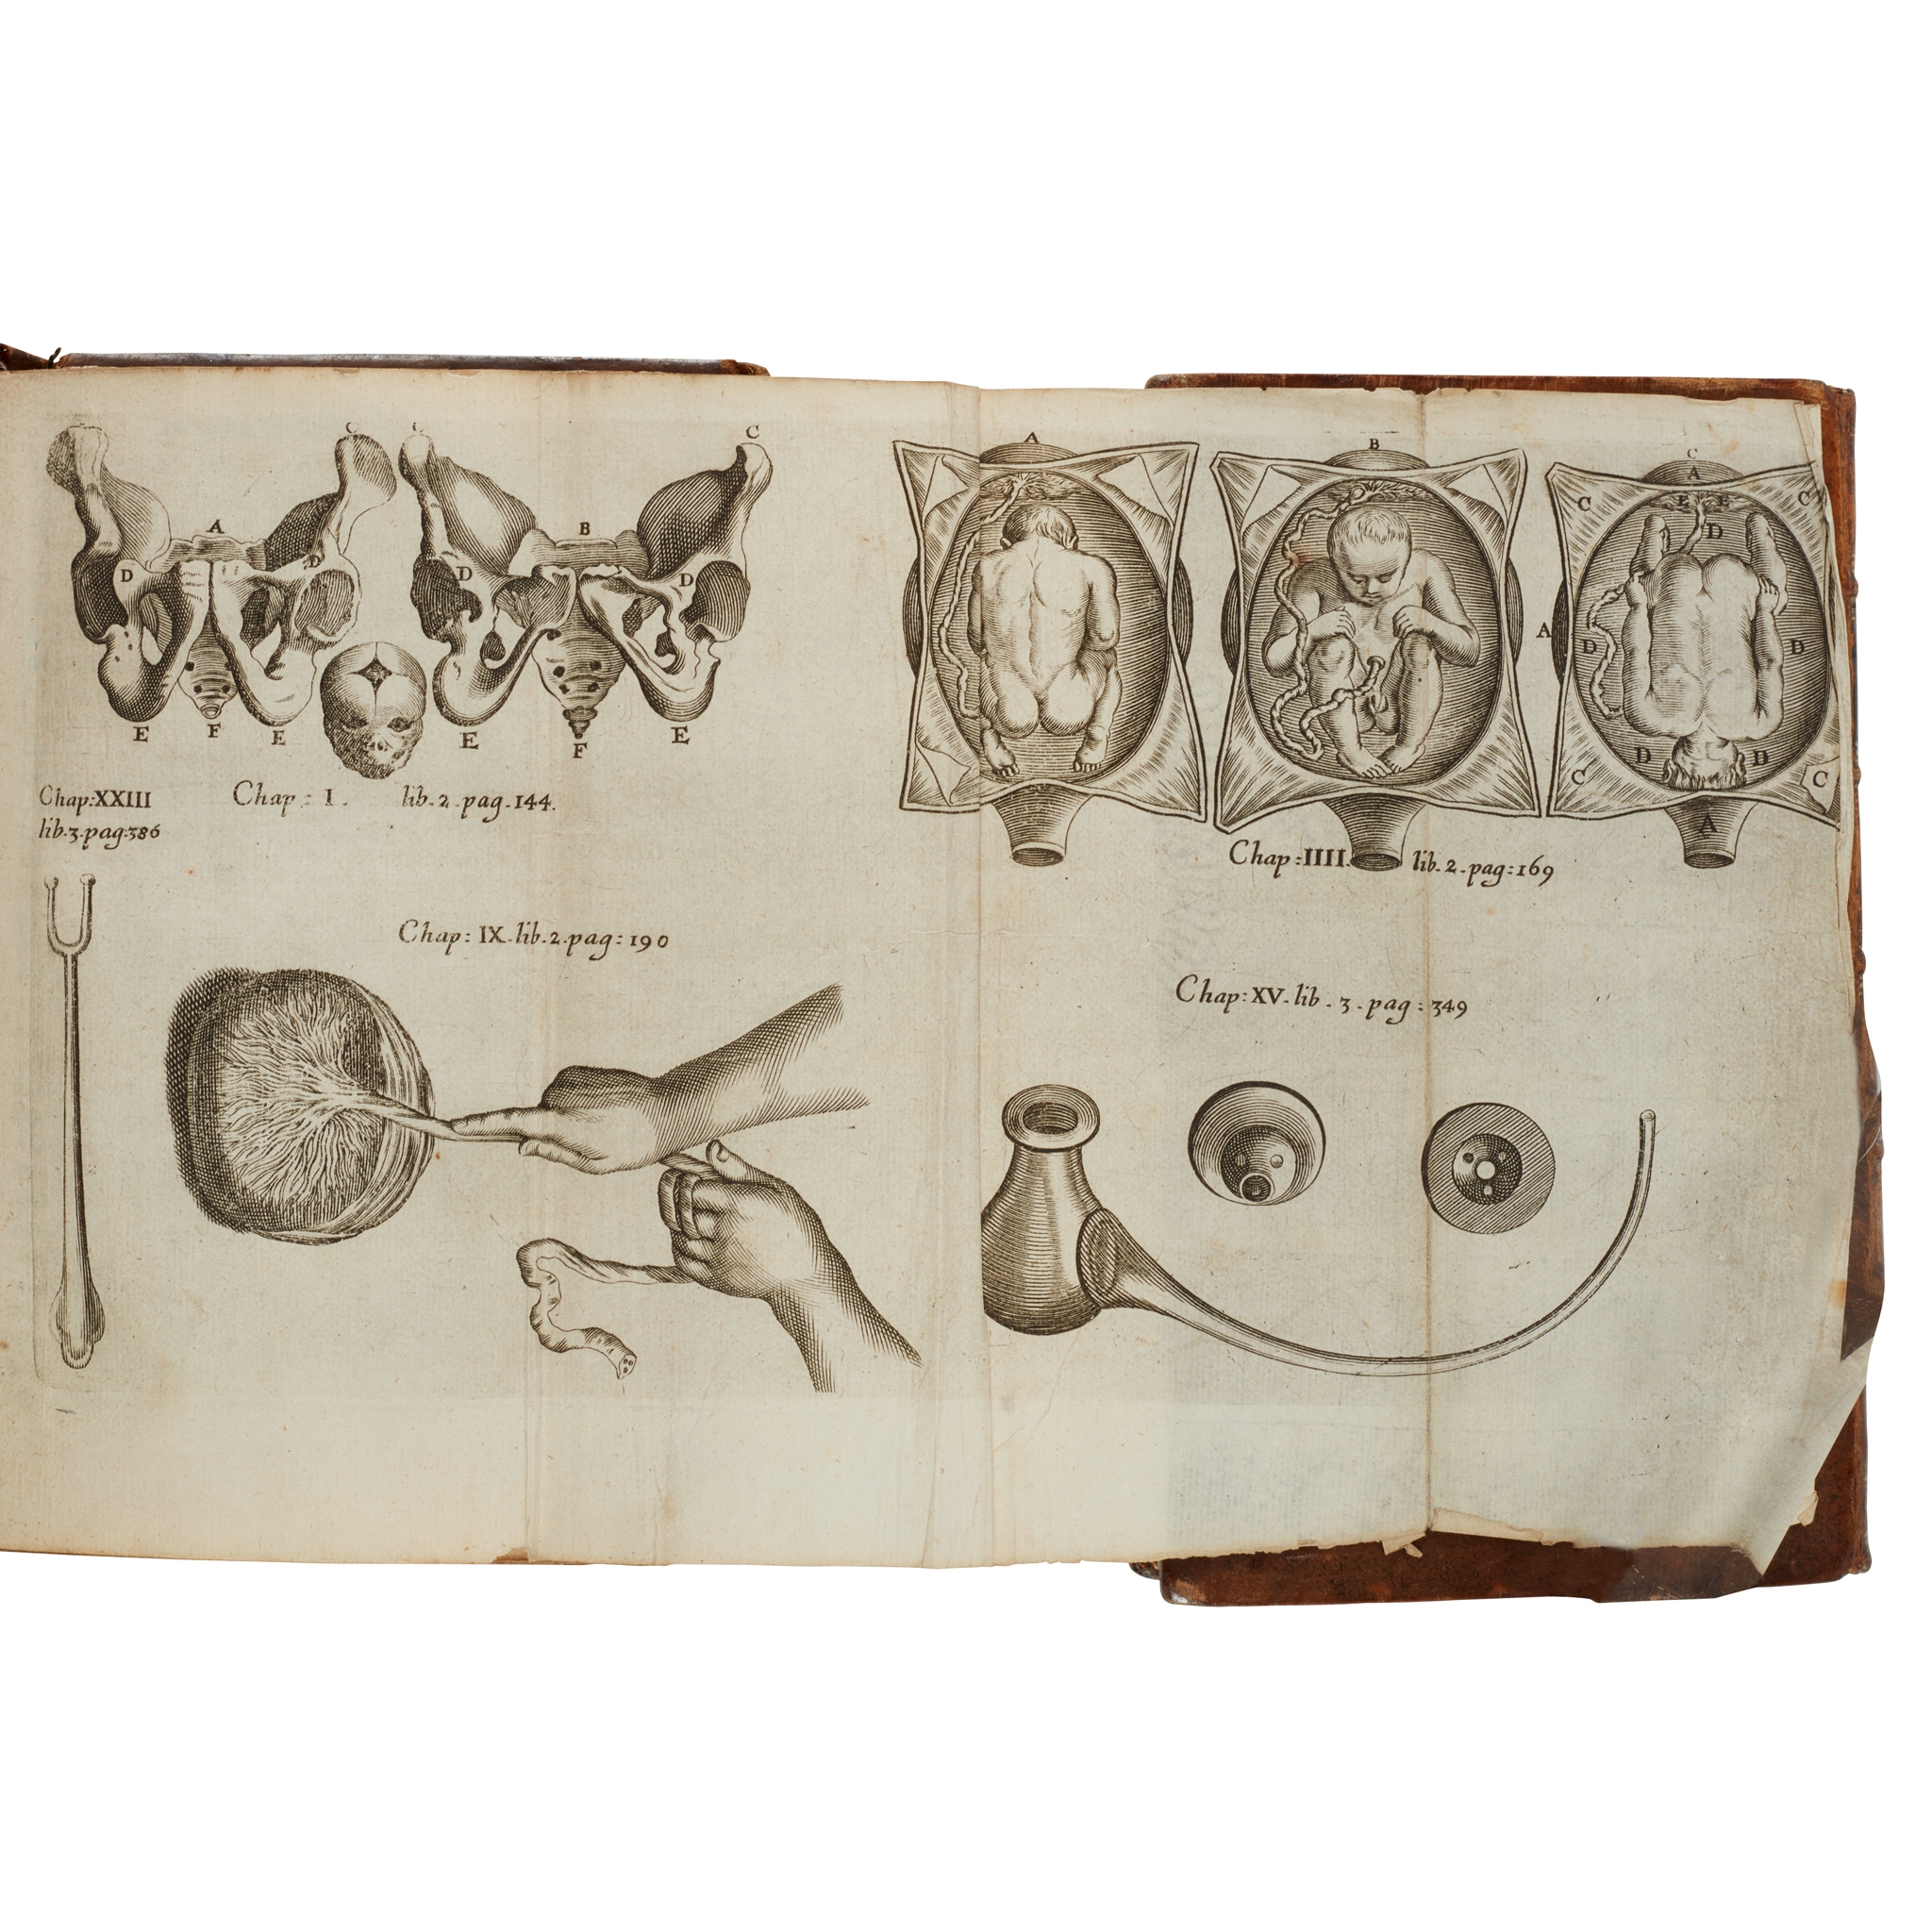 C C C C
A B
D D D D
E F E E F E
Chap:XXIII
lib.3.pag:386
Chap: I. lib.2.pag.144.
Chap: IX.lib.2.pag:190
A B C
A
C E E C
D
A D D
D D
C C
A
Chap:IIII. lib.2.pag:169
Chap:XV.lib.3.pag:349